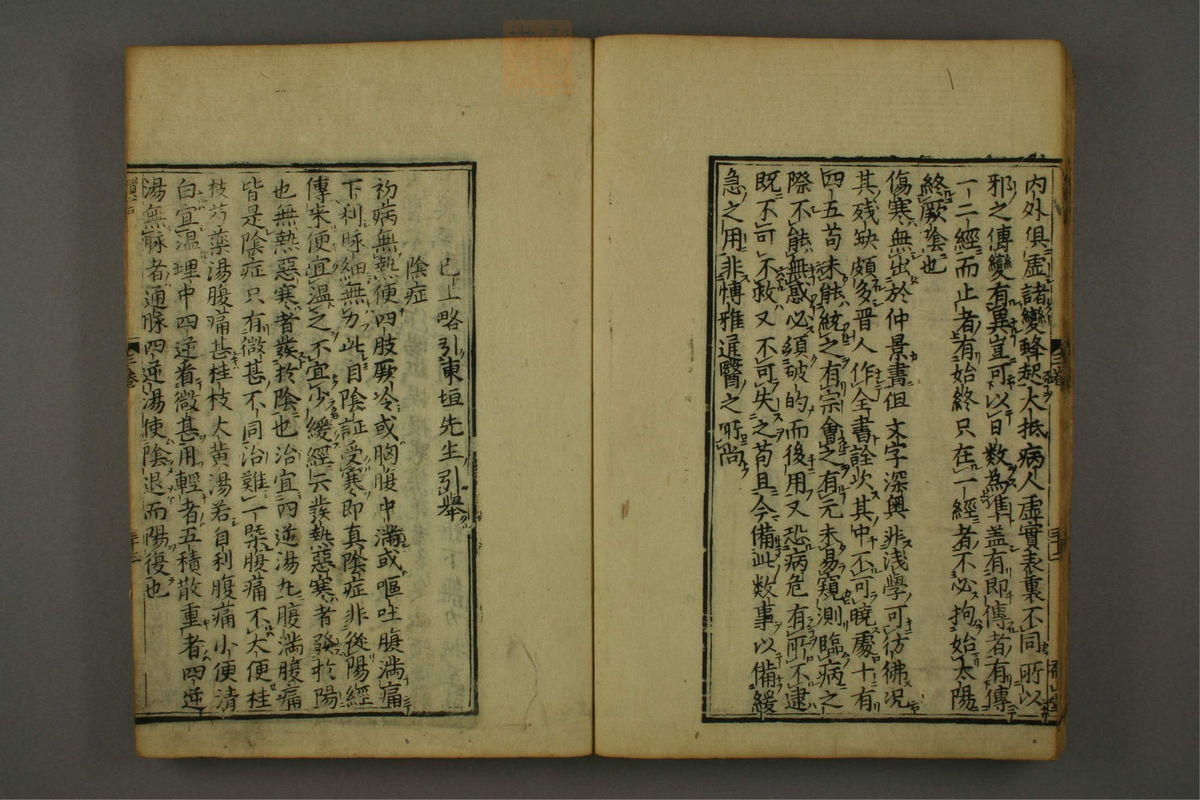 内外俱虛諸變蜂起大抵病人虛實表裏不同所以
邪之傳變有異豈可以日数為準盖有即傳者有傳
一二經而止者有始終只在一經者不必拘始太陽
終厥陰也
傷寒無出於仲景書但文字深奥非浅學可彷彿况
其残缺頗多晋人作全書詮次其中不可曉處十有
四五苟未能統之有宗會之有元未易窺測臨病之
際不能無惑必須破的而後用又恐病危有所不逮
既不可不救又不可失之苟且今備此数事以備緩
急之用非愽雅進醫之所尚
已上略引東垣先生引舉
陰症
初病無熱便四肢厥冷或胸腹中満或嘔吐腹満痛
下利脉細無力此自陰証受寒即真陰症非從陽經
傳来便宜温之不宜少緩經云發熱惡寒者發於陽
也無熱惡寒者發於陰也治宜四逆湯凡腹満腹痛
皆是陰症只有微甚不同治難一槩腹痛不大便桂
枝芍薬湯腹痛甚桂枝大黄湯若自利腹痛小便清
白宜温理中四逆看微甚用輕者五積散重者四逆
湯無脉者通脉四逆湯使陰退而陽復也